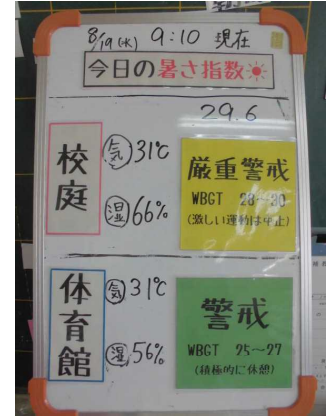 8/19(水) 9:10 現在
今日の暑さ指数
29.6
校庭
気 31℃
湿 66%
厳重警戒
WBGT 28〜30
(激しい運動は中止)
体育館
気 31℃
湿 56%
警戒
WBGT 25〜27
(積極的に休憩)